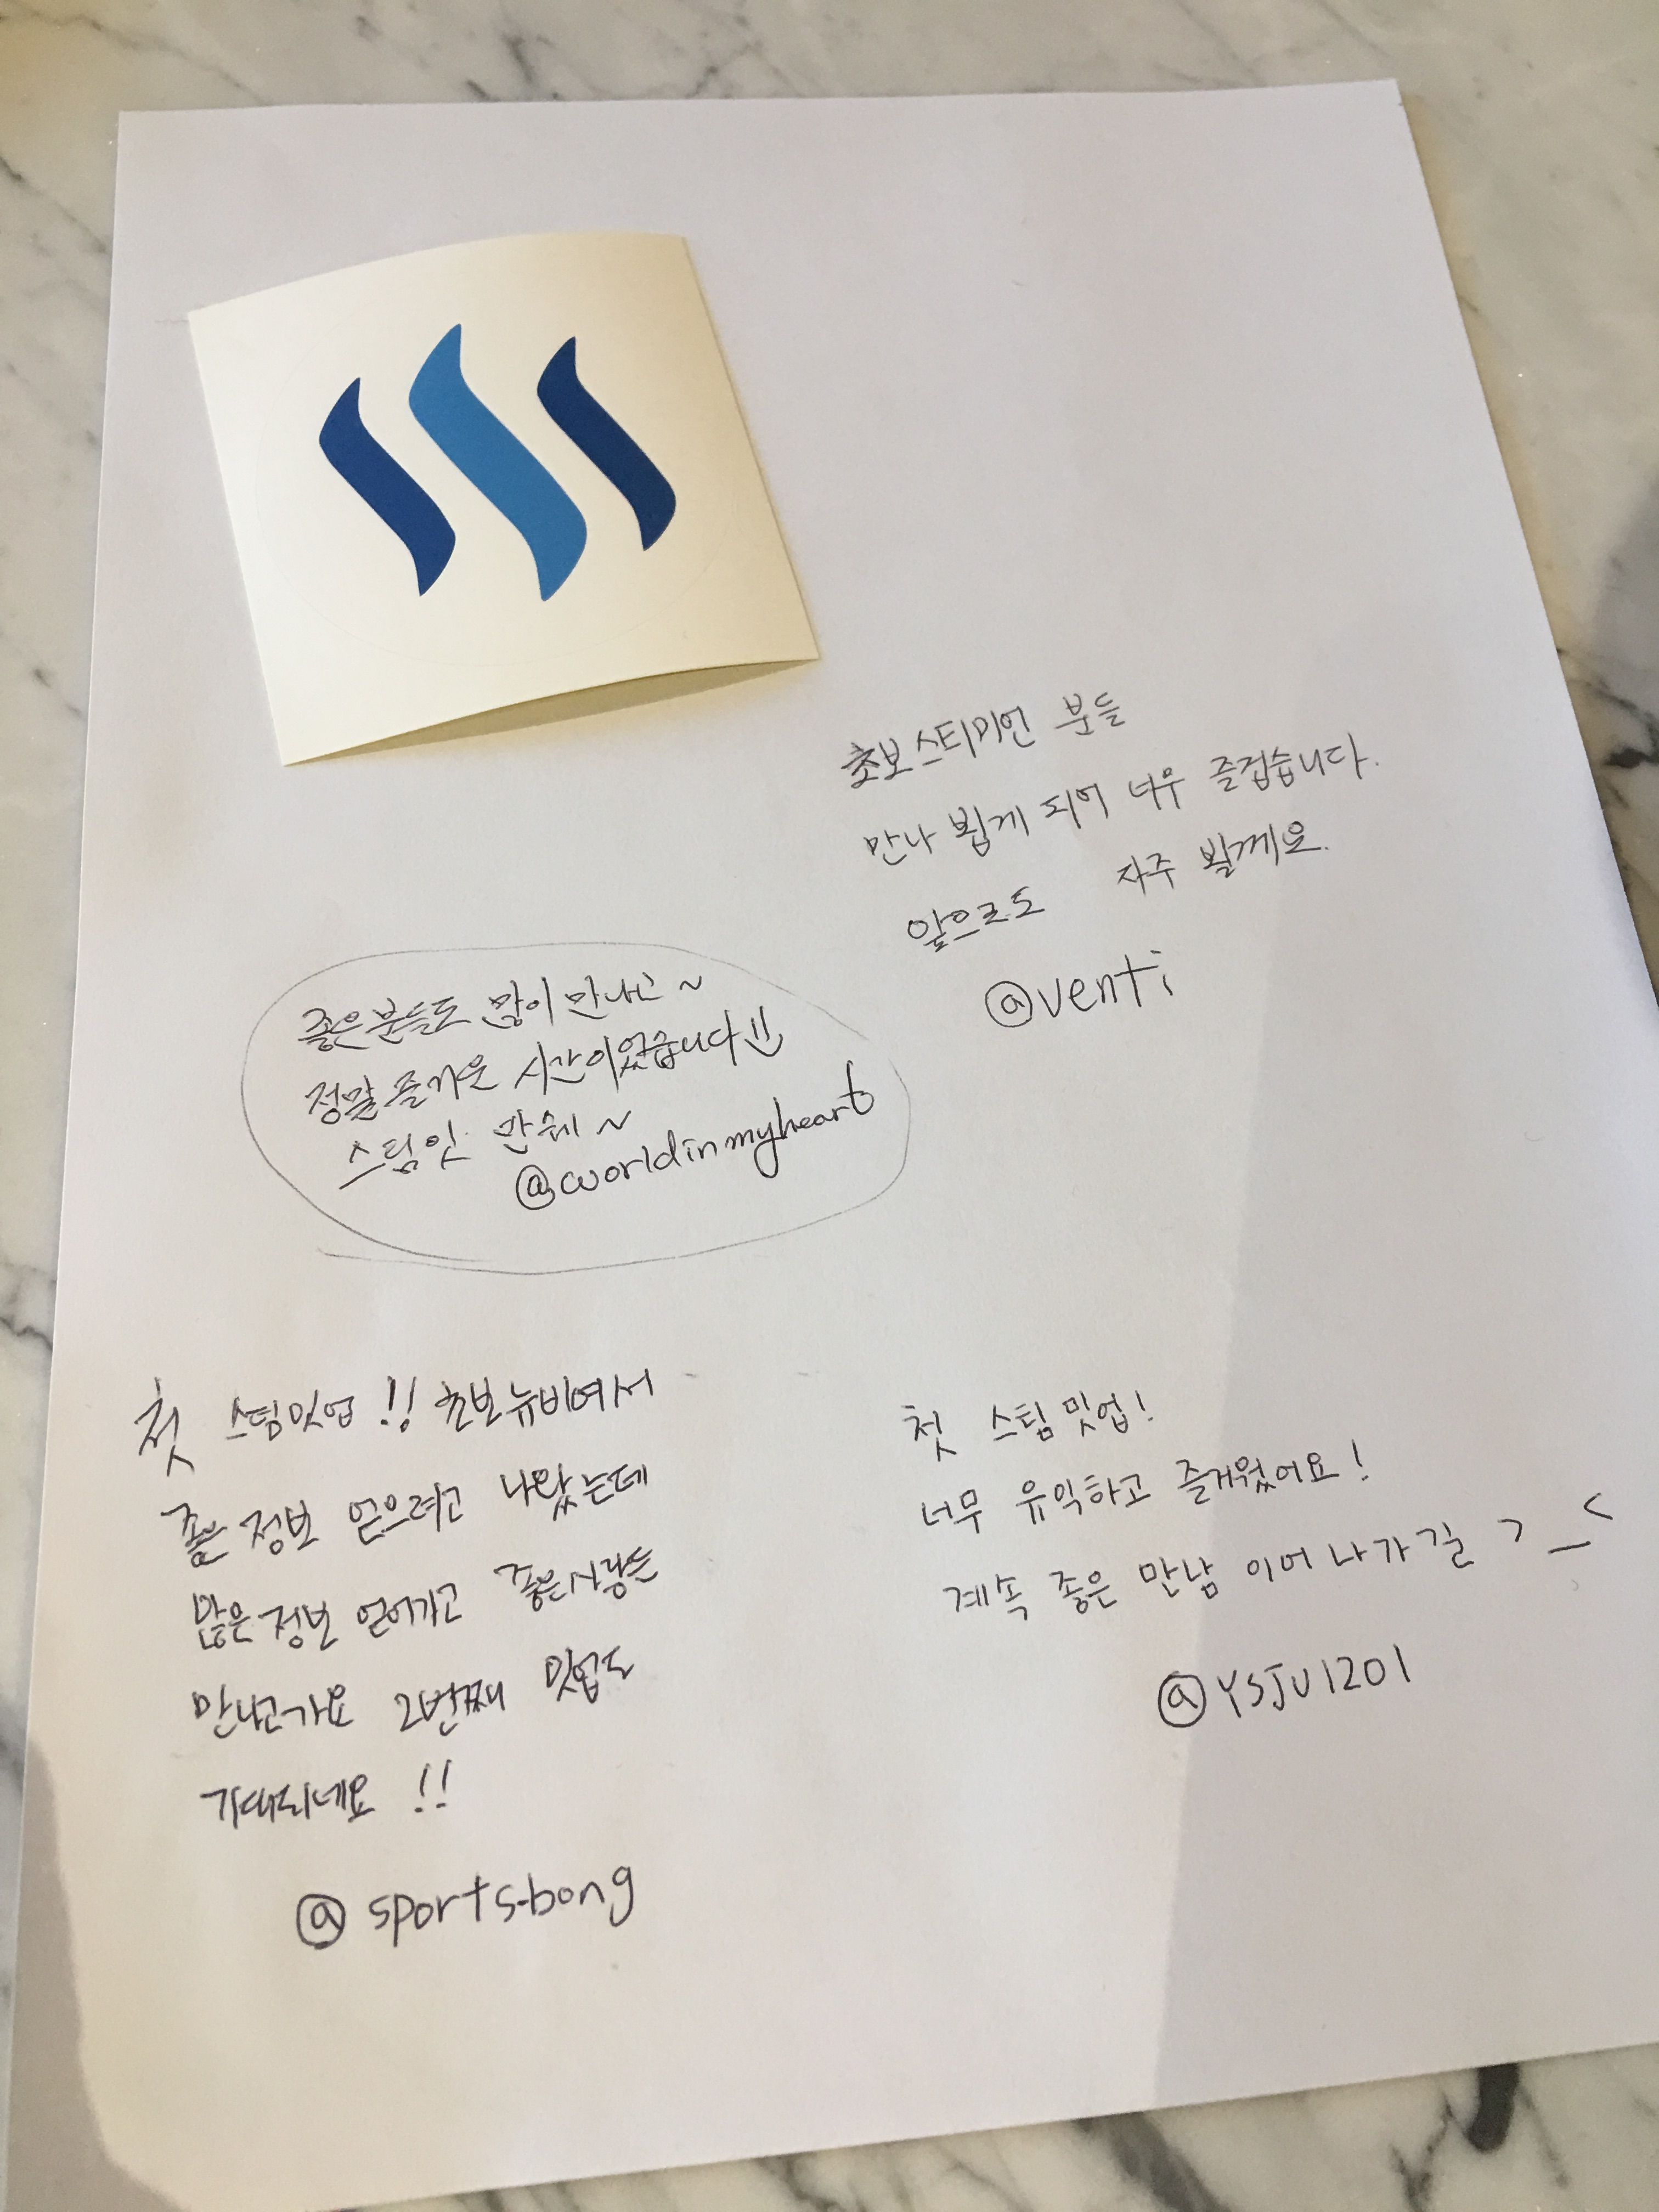 초보 스티미언 분들
만나 뵙게 되어 너무 즐겁습니다.
앞으로도 자주 뵐께요.
@venti
좋은분들도 많이 만나고~
정말 즐거운 시간이었습니다!!
스팀잇 만세~
@worldinmyheart
첫 스팀밋업!! 초보뉴비여서
좋은 정보 얻으려고 나왔는데
많은 정보 얻어가고 좋은사람들
만나고가요 2번째 밋업도
기대되네요 !!
@sports-bong
첫 스팀 밋업!
너무 유익하고 즐거웠어요!
계속 좋은 만남 이어 나가길 >_<
@ysju1201